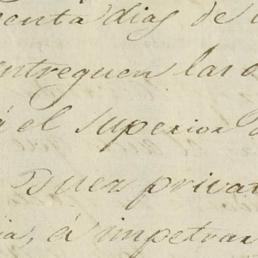 enta dias de
entreguen las
el superior
Juez privat
ia, á impetrar